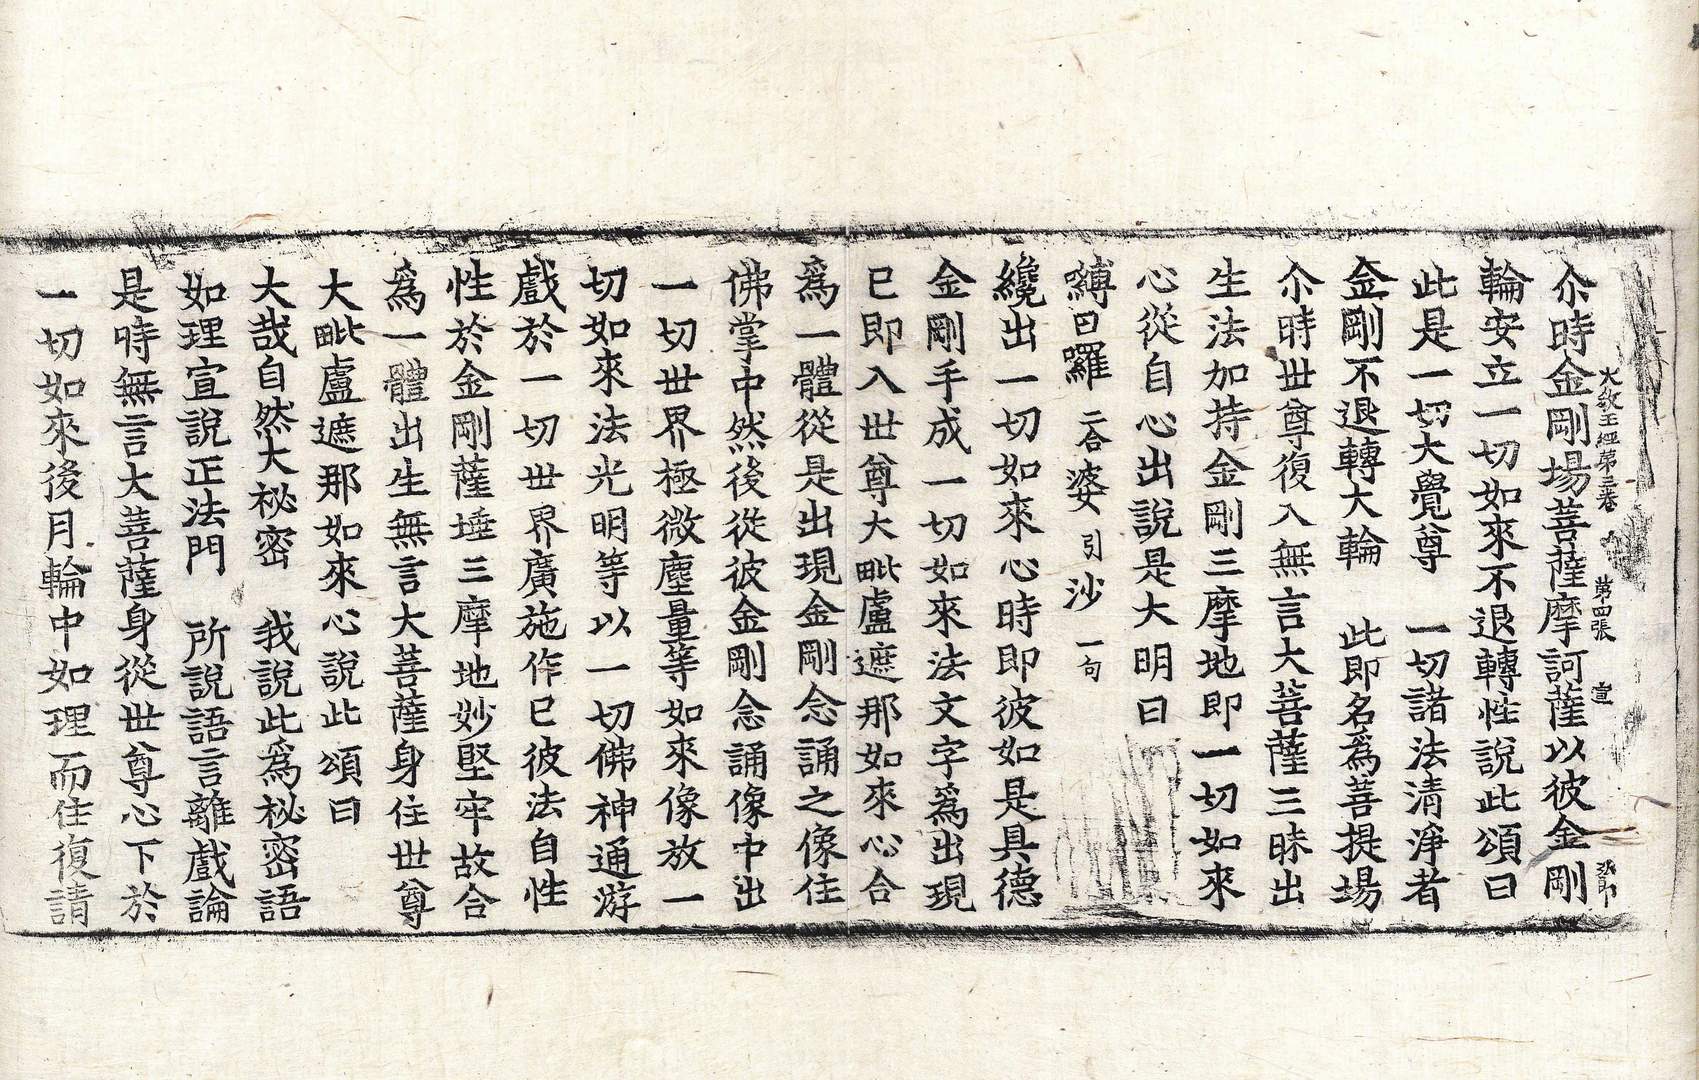 大教王經第三卷 第四張 宣
尒時金剛場菩薩摩訶薩以彼金剛
輪安立一切如來不退轉性說此頌曰
此是一切大覺尊 一切諸法清淨者
金剛不退轉大輪 此即名爲菩提場
尒時世尊復入無言大菩薩三昧出
生法加持金剛三摩地即一切如來
心從自心出說是大明曰
嚩日囉 二合 婆 引 沙 一句
纔出一切如來心時即彼如是具德
金剛手成一切如來法文字爲出現
已即入世尊大毗盧遮那如來心合
爲一體從是出現金剛念誦之像住
佛掌中然後從彼金剛念誦像中出
一切世界極微塵量等如來像放一
切如來法光明等以一切佛神通游
戲於一切世界廣施作已彼法自性
性於金剛薩埵三摩地妙堅牢故合
爲一體出生無言大菩薩身住世尊
大毗盧遮那如來心說此頌曰
大哉自然大祕密 我說此爲秘密語
如理宣說正法門 所說語言離戲論
是時無言大菩薩身從世尊心下於
一切如來後月輪中如理而住復請